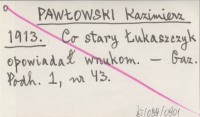 PAWŁOWSKI Kazimierz
1913. Co stary Łukaszczyk
opowiadał wnukom. — Gaz.
Podh. 1, nr 43.